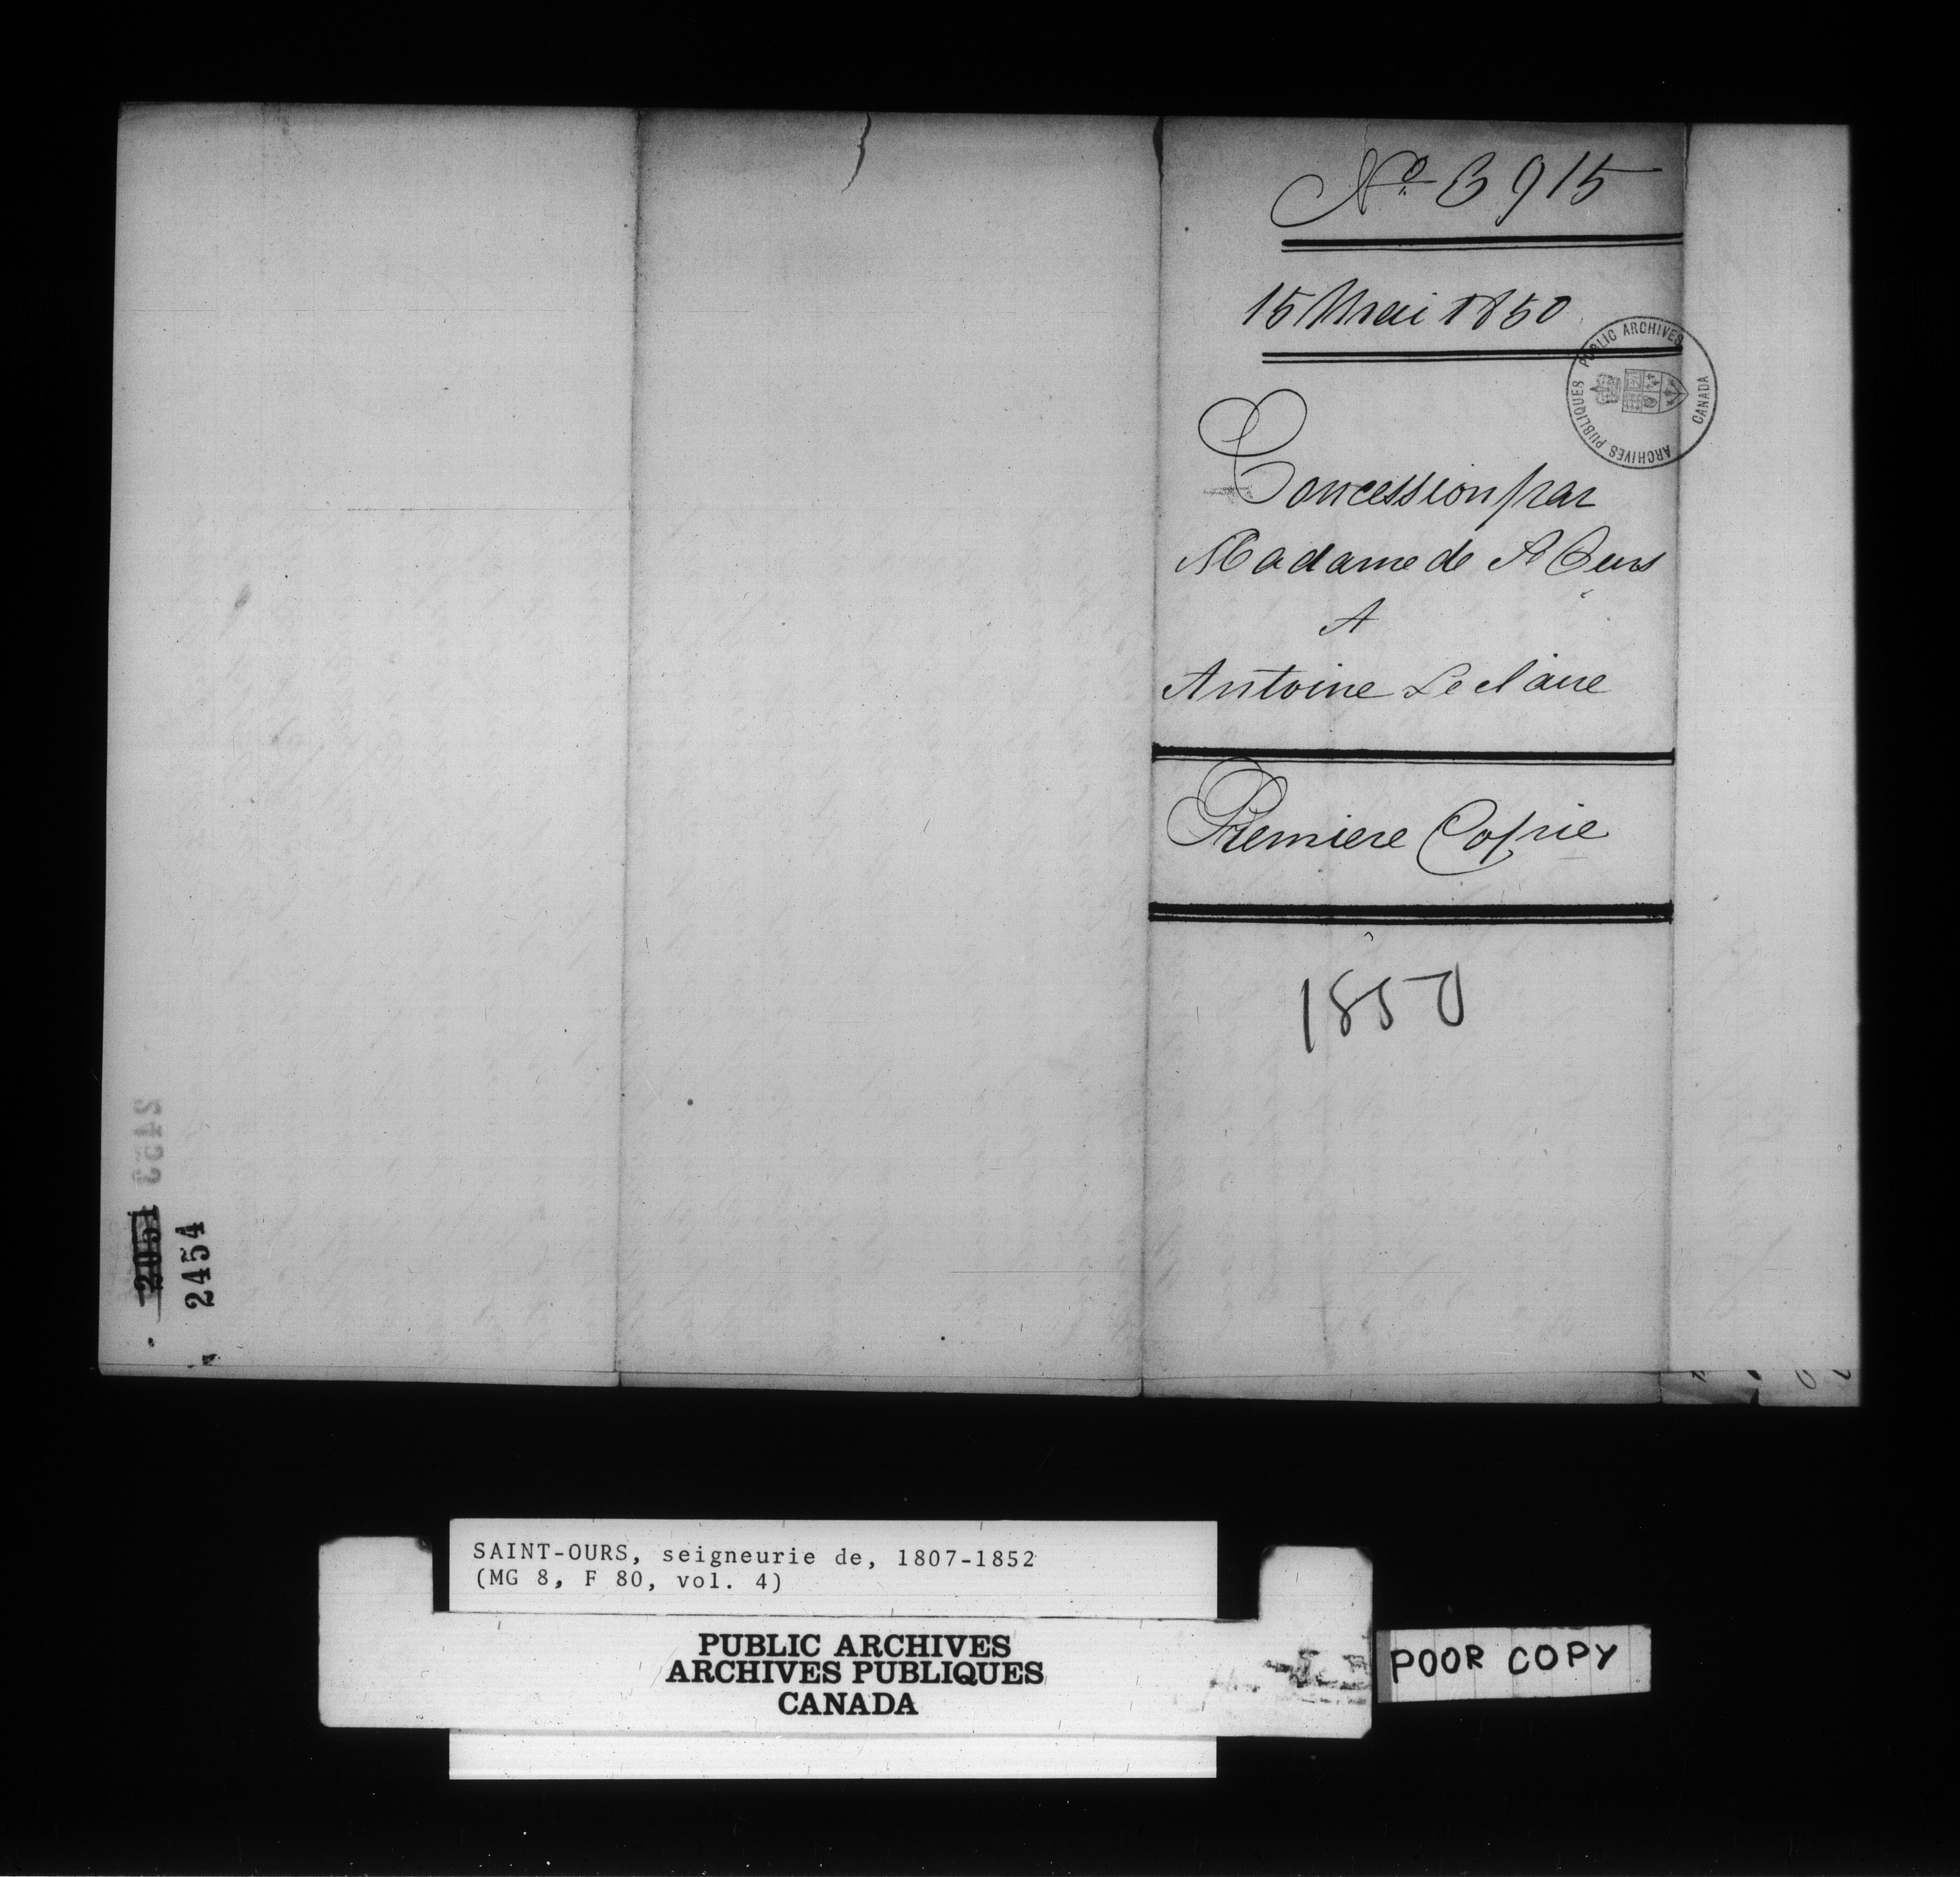 No. 3915
15 Mai 1850
PUBLIC ARCHIVES
ARCHIVES PUBLIQUES
CANADA
Concession par
Madame de St Ours
A
Antoine Leclaire
Premiere Copie
1850
2453
2051
2454
SAINT-OURS, seigneurie de, 1807-1852
(MG 8, F 80, vol. 4)
PUBLIC ARCHIVES
ARCHIVES PUBLIQUES
CANADA
POOR COPY